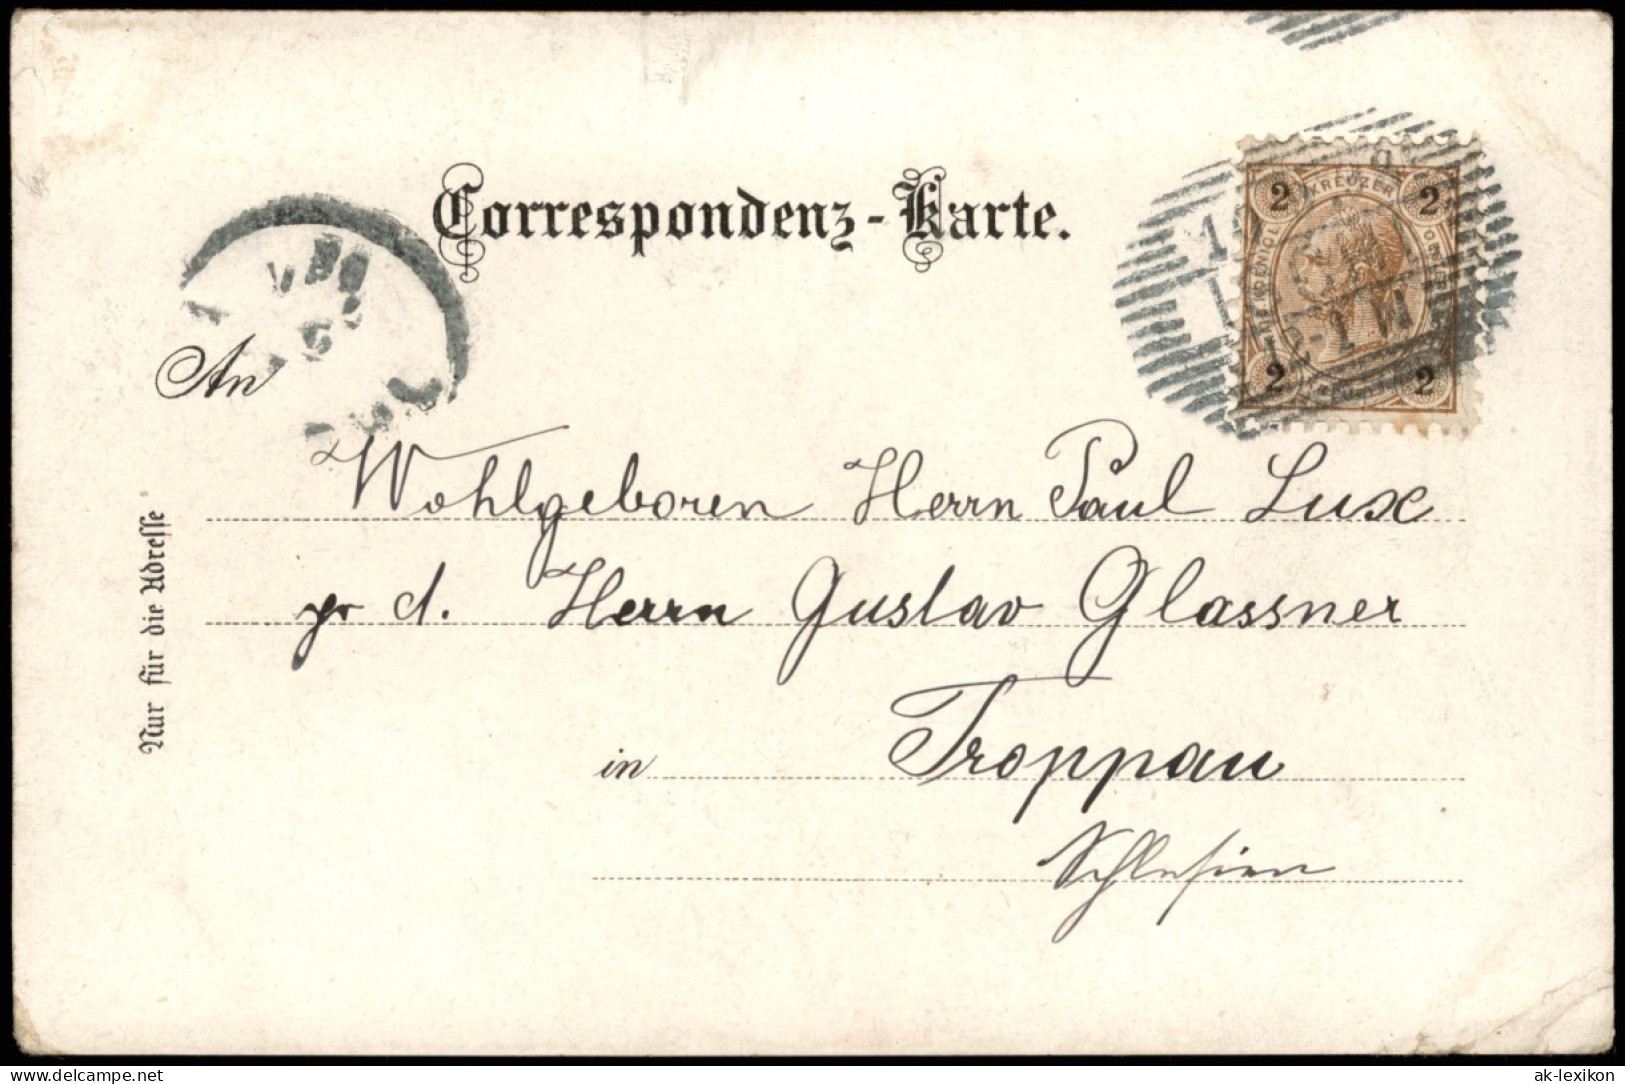 Correspondenz-Karte.
2 KREUZER 2
2 2
12-1 N
An
Wohlgeboren Herrn Paul Lux
pr d. Herrn Gustav Glassner
in Troppau
Schlesien
Nur für die Adresse
delcampe.net
ak-lexikon